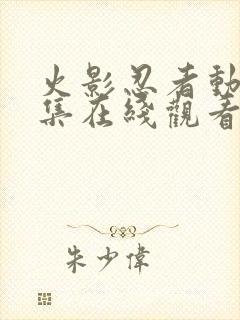 火影忍者動
集在綫觀看
朱少偉